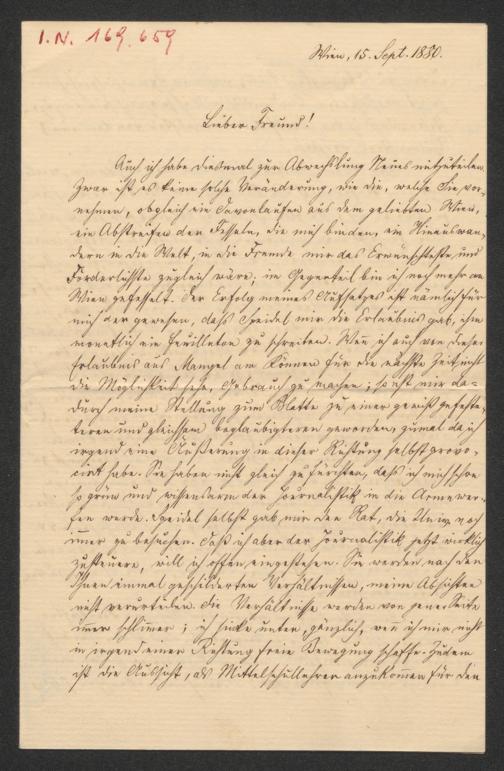 I.N. 169.659
Wien, 15. Sept. 1880.
Lieber Freund!
Auch ich habe diesmal zur Abwechslung Neues mitzuteilen.
Zwar ist es keine solche Veränderung, wie die, welche Sie vor-
nehmen, obgleich ein Davonlaufen aus dem geliebten Wien,
ein Abstreifen der Fesseln, die mich binden, ein Hinauswan-
dern in die Welt, in die Fremde mir das Erwünschteste und
Forderlichste zugleich wäre; im Gegenteil bin ich noch mehr an
Wien gefesselt. Der Erfolg meines Aufsatzes ist nämlich für
mich der gewesen, dass Speidel mir die Erlaubnis gab, ihm
monatlich ein Feuilleton zu schreiben. Wenn ich auch von dieser
Erlaubnis aus Mangel an Können für die nächste Zeit nicht
die Möglichkeit sehe, Gebrauch zu machen; so ist mir da-
durch meine Stellung zum Blatte zu einer gewiß gefestig-
teren und gleichsam beglaubigteren geworden, zumal da ich
irgend eine Äußerung in dieser Richtung selbst provo-
cirt habe. Sie haben nicht gleich zu fürchten, dass ich mich schon
so grün und wissensarm der Journalistik in die Arme wer-
fen werde. Speidel selbst gab mir den Rat, die Univ. noch
immer zu besuchen. Daß ich aber der Journalistik jetzt wirklich
zusteuere, will ich offen eingestehen. Sie werden nach den
Ihnen einmal geschilderten Verhältnissen, meine Absichten
nicht verurteilen. Die Verhältnisse werden von jener Seite
immer schlimmer; ich sinke unter, gänzlich, wenn ich mir nicht
in irgend einer Richtung freie Bewegung schaffe. Zudem
ist die Aussicht, als Mittelschullehrer anzukommen für den